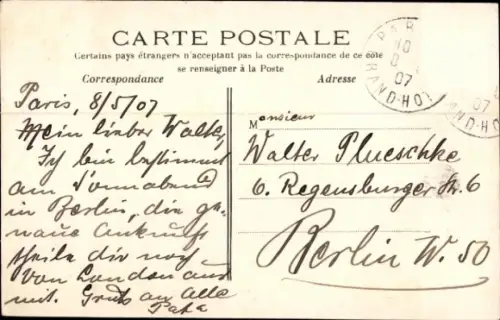 CARTE POSTALE
Certains pays étrangers n'acceptant pas la correspondance de ce côté
se renseigner à la Poste
Correspondance
Adresse
Paris, 8/5/07
Mein lieber Walter,
Ich bin bestimmt
am Sonnabend
in Berlin, die ge-
naue Ankunft
theile dir noch
von London aus
mit. Gruss an Alle
Papa
Monsieur
Walter Plueschke
6. Regensburger Str. 6
Berlin W. 50
PAR
10
07
RAND-HO
07
AND-HO